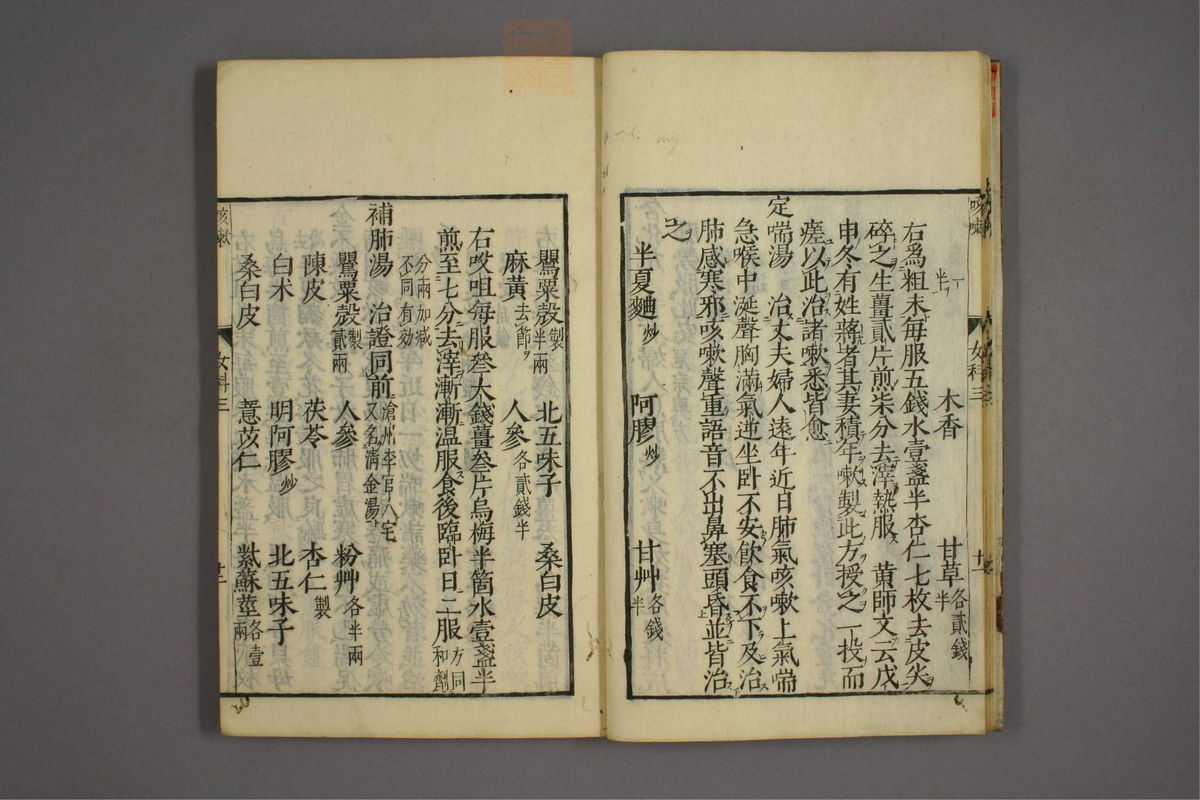 半 木香 甘草各貳錢半
右爲粗末每服五錢水壹盞半杏仁七枚去皮尖
碎之生薑貳片煎柒分去滓熱服 黃師文云戊
申冬有姓蔣者其妻積年嗽製此方授之一投而
瘥以此治諸嗽悉皆愈
定喘湯 治丈夫婦人遠年近日肺氣咳嗽上氣喘
急喉中涎聲胸滿氣逆坐卧不安飲食不下及治
肺感寒邪咳嗽聲重語音不出鼻塞頭昏並皆治
之
半夏麯炒 阿膠炒 甘艸各錢半
罌粟殼製半兩 北五味子 桑白皮
麻黃去節 人參各貳錢半
右㕮咀每服叄大錢薑叄片烏梅半箇水壹盞半
煎至七分去滓漸漸温服食後臨卧日二服和劑方同
分兩加减不同有効
補肺湯 治證同前滄州李官人宅又名清金湯
罌粟殼製貳兩 人參 粉艸各半兩
陳皮 茯苓 杏仁製
白术 明阿膠炒 北五味子
桑白皮 薏苡仁 紫蘇莖各壹兩
咳嗽 女科三